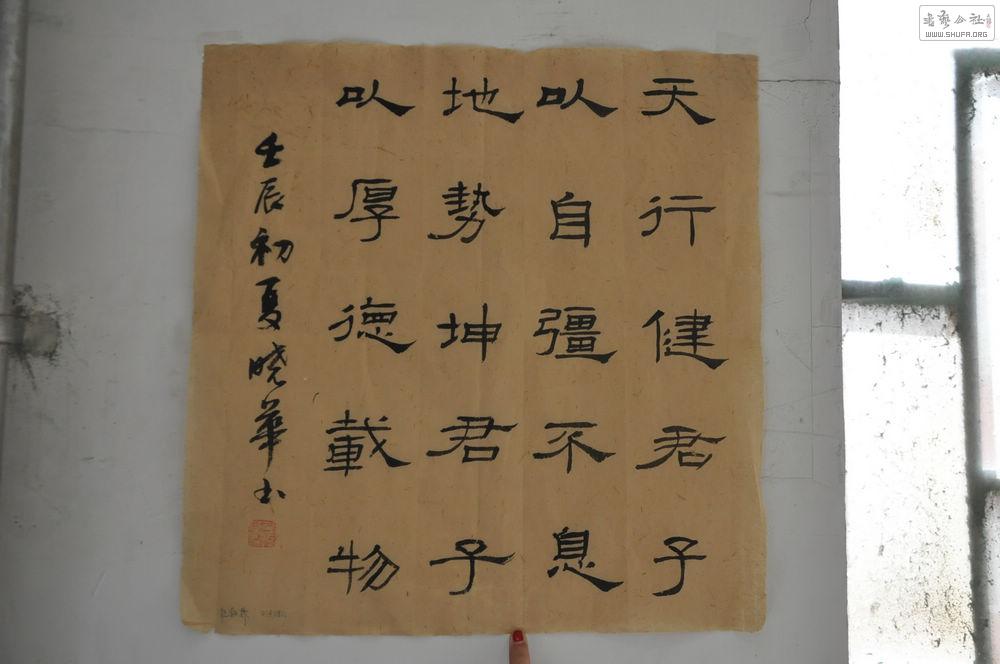 天行健君子
以自彊不息
地勢坤君子
以厚德載物
壬辰初夏曉華书
书艺公社
WWW.SHUFA.ORG